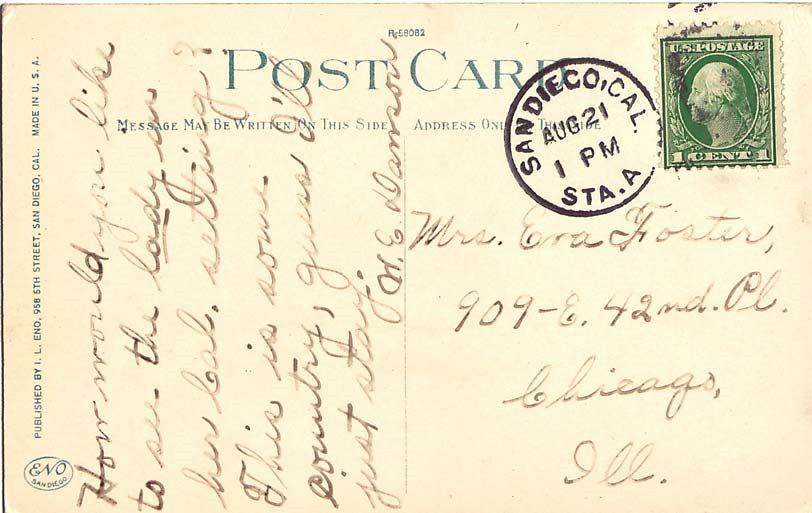 R-58082
POST CARD
MESSAGE MAY BE WRITTEN ON THIS SIDE
ADDRESS ONLY ON THIS SIDE
SAN DIEGO, CAL.
AUG 21
1 PM
STA. A
U.S. POSTAGE
1 CENT 1
How would you like
to see the lady in
her Cal. setting?
This is some
country, guess I'll
just stay.
W. E. Dawson
Mrs. Eva Foster,
909-E. 42nd. Pl.
Chicago,
Ill.
PUBLISHED BY I. L. ENO, 958 5TH STREET, SAN DIEGO, CAL. MADE IN U. S. A.
ENO
SAN DIEGO